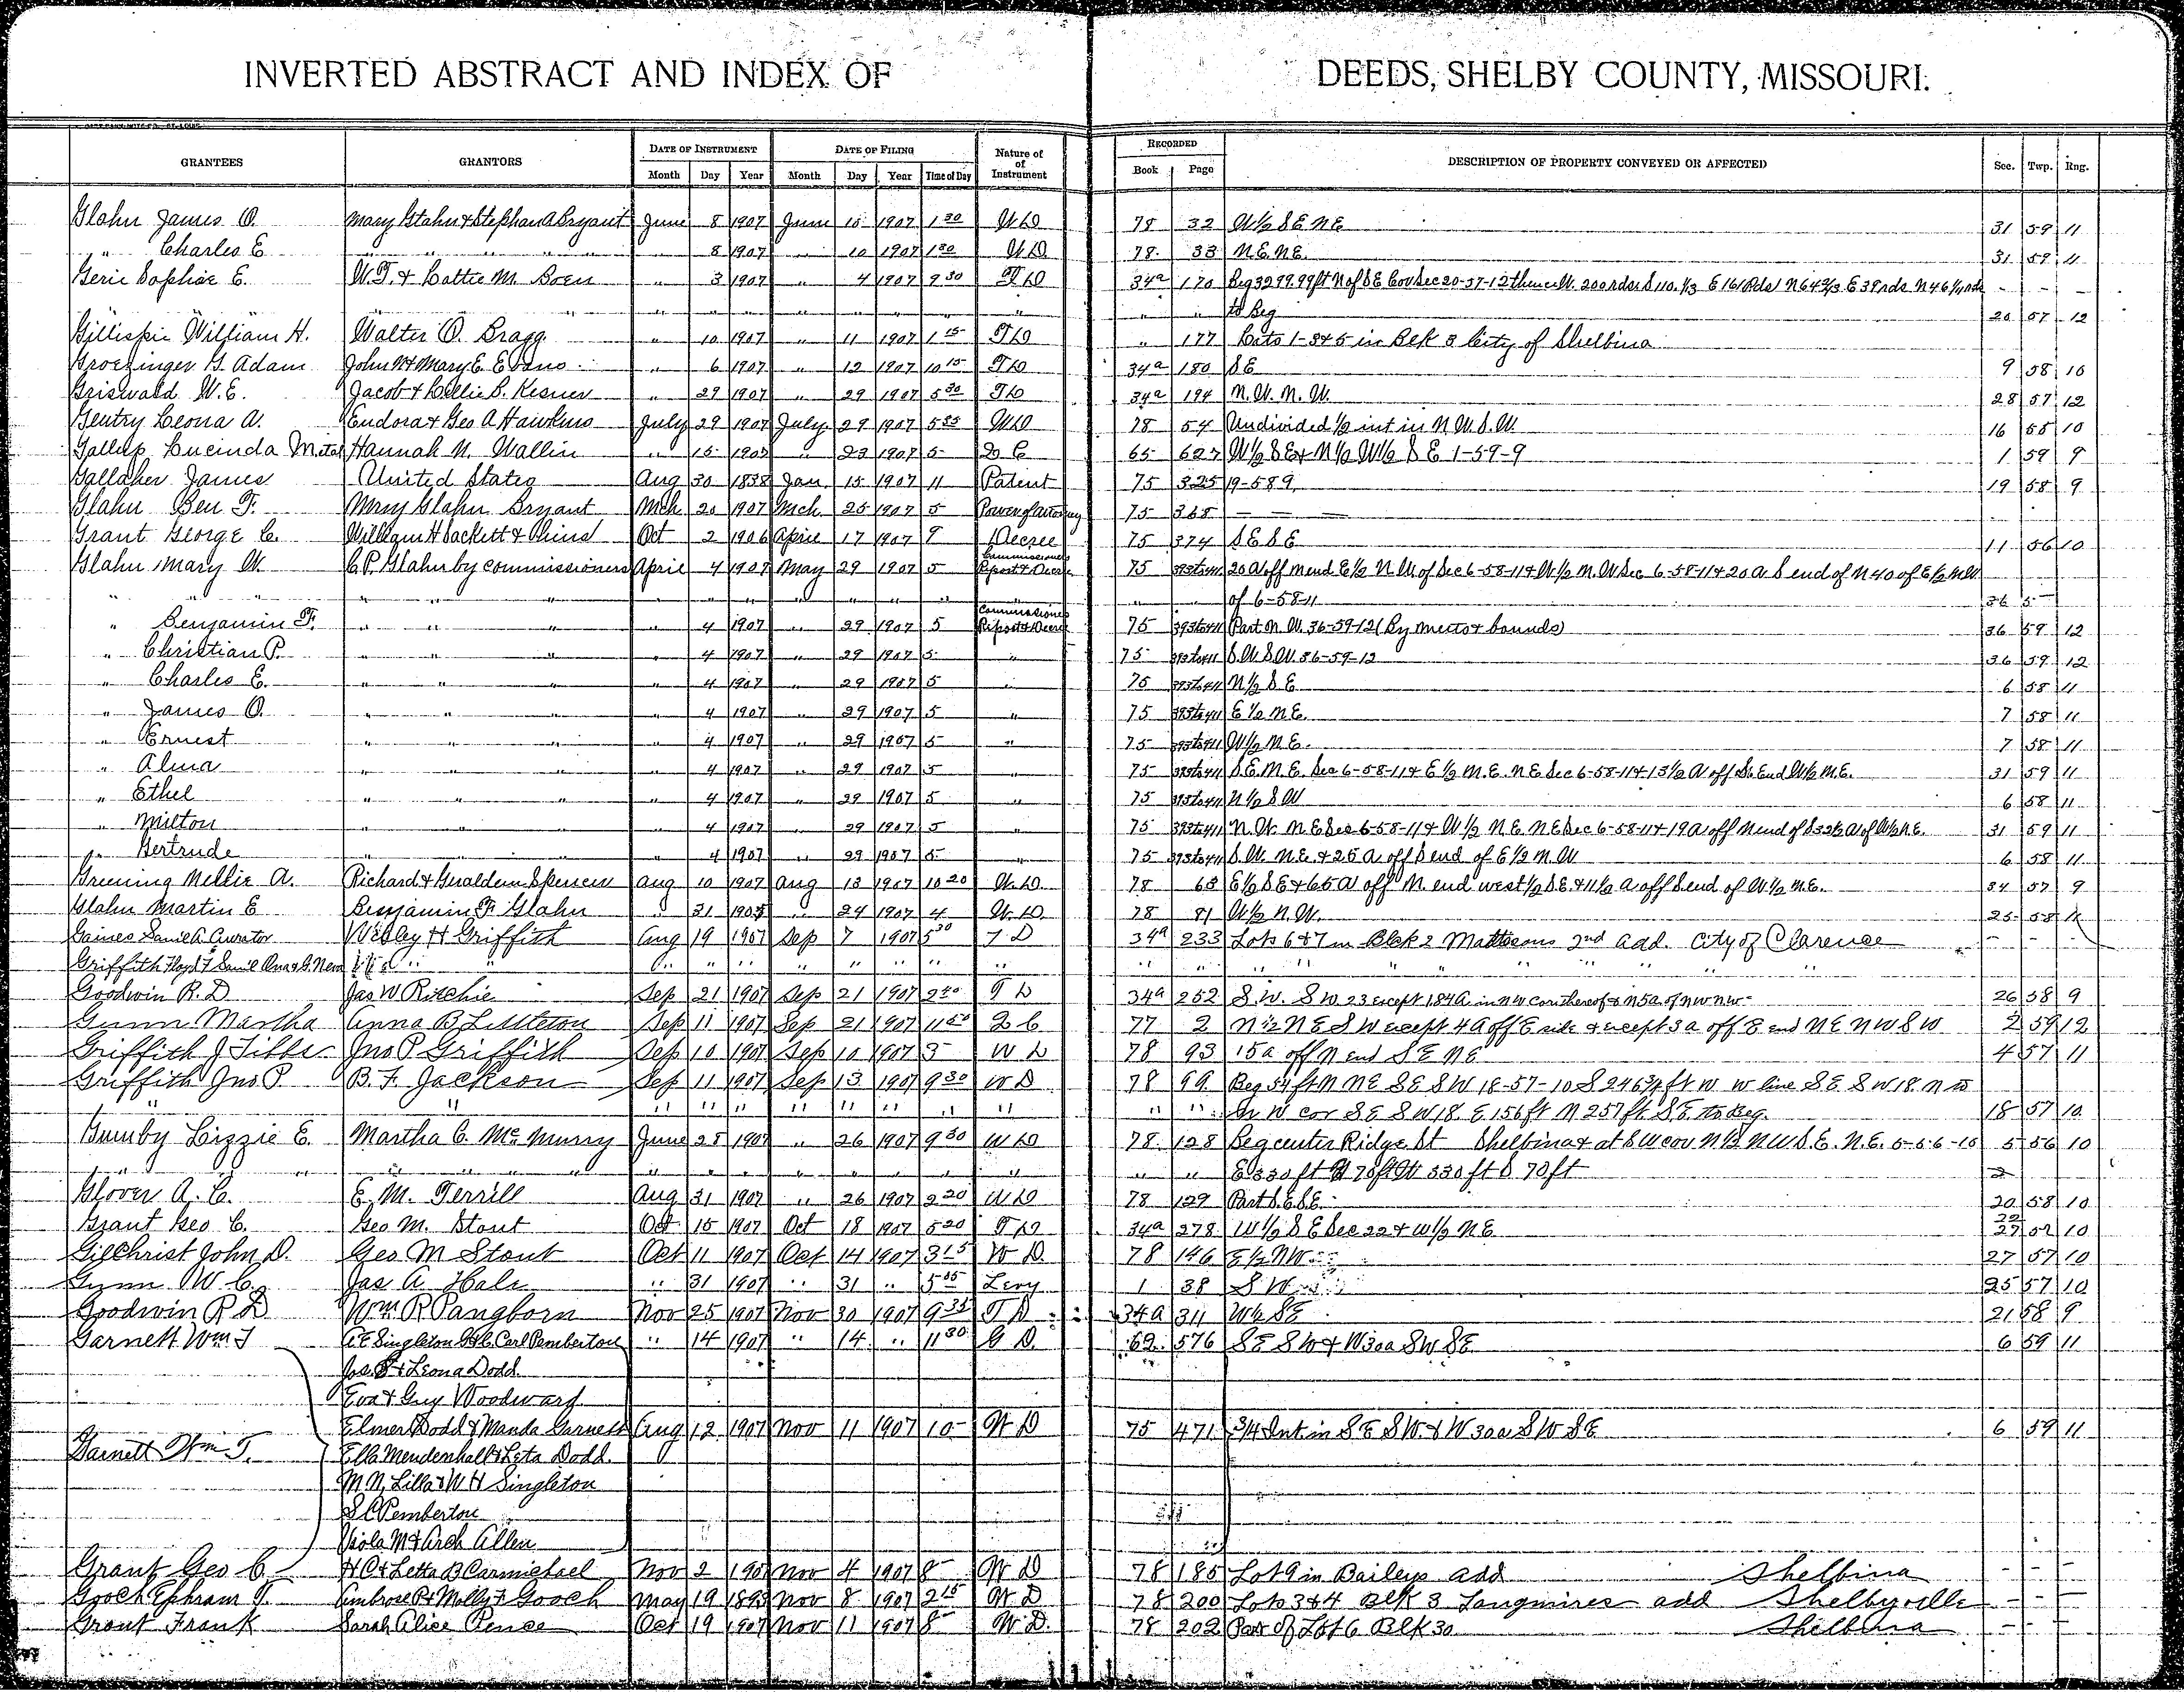 INVERTED ABSTRACT AND INDEX OF DEEDS, SHELBY COUNTY, MISSOURI.
GRANTEES GRANTORS DATE OF INSTRUMENT DATE OF FILING Nature of of Instrument RECORDED DESCRIPTION OF PROPERTY CONVEYED OR AFFECTED Sec. Twp. Rng.
Month Day Year Month Day Year Time of Day Book Page
Glahn James O. Mary Glahn & Stephan A Bryant June 8 1907 June 10 1907 1 30 W D 78 32 W½ S E N E 31 59 11
" Charles E " " " " 8 1907 " 10 1907 1 30 W D 78 33 N.E. N.E. 31 59 11
Geric Sophie E. W.T. & Lottie M. Boen " 3 1907 " 4 1907 9 30 T D 34a 170 Beg 3299.99 ft N of S E Cor Sec 20-57-12 thence W. 200 rds S 110. 1/3 E 161 Rds N 64 2/3 E 39 rds N 46 1/4 rds - - -
" " " " " " " " " " " " " to Beg 20 57 12
Gillispie William H. Walter O. Bragg " 10 1907 " 11 1907 1 15 T D " 177 Lots 1-3 & 5 in Blk 3 City of Shelbina
Groezinger G. Adam John W & Mary E. Evans " 6 1907 " 12 1907 10 15 T D 34a 180 S E 9 58 10
Griswald W. E. Jacob & Lillie B. Kesner " 29 1907 " 29 1907 5 30 T D 34a 194 N. W. N. W. 28 57 12
Gentry Leona A. Eudora & Geo A Hawkins July 29 1907 July 29 1907 5 35 W D 78 54 Undivided ½ int in N W. S. W. 16 58 10
Gallup Lucinda M et al Hannah N. Wallin " 15 1907 " 23 1907 5 Q C 65 627 W½ S E & N½ W½ S E 1-59-9 1 59 9
Gallaher James United States Aug 30 1838 Jan 15 1907 11 Patent 75 325 19-589 19 58 9
Glahn Ben F. Mary Glahn Bryant Mch 20 1907 Mch 25 1907 5 Power of Attorney 75 368 — — —
Grant George C. William H Sackett & Heirs Oct 2 1906 April 17 1907 9 Decree 75 374 S E S E 11 56 10
Glahn Mary W. C. P. Glahn by commissioners April 4 1907 May 29 1907 5 Commissioners Report & Decree 75 393 to 411 20 A off N end E½ N W of Sec 6-58-11 & W½ N. W Sec 6-58-11 & 20 A S end of N 40 of E½ N W
" " " " " " " " " " " " of 6-58-11 36 5
" Benjamin F. " " " 4 1907 " 29 1907 5 Commissioner Report & Decree 75 393 to 411 Part N. W. 36-59-12 (By meets & bounds) 36 59 12
" Christian P. " " " 4 1907 " 29 1907 5 " 75 393 to 411 S. W. S. W. 36-59-12 36 59 12
" Charles E. " " " " 4 1907 " 29 1907 5 " 75 393 to 411 N½ S E 6 58 11
" James O. " " " " 4 1907 " 29 1907 5 " 75 393 to 411 E½ N.E. 7 58 11
" Ernest " " " " 4 1907 " 29 1907 5 " 75 393 to 411 W½ N E. 7 58 11
" Alma " " " " 4 1907 " 29 1907 5 " 75 393 to 411 S. E. N. E. Sec 6-58-11 & E½ N. E. N E Sec 6-58-11 & 13½ A off So End W½ N.E. 31 59 11
" Ethel " " " " 4 1907 " 29 1907 5 " 75 393 to 411 N½ S W 6 58 11
" Milton " " " " 4 1907 " 29 1907 5 " 75 393 to 411 N. W. N E Sec 6-58-11 & W½ N E N E Sec 6-58-11 & 19 A off N end of S 32½ A of W½ N.E. 31 59 11
" Gertrude " " " " 4 1907 " 29 1907 5 " 75 393 to 411 S. W. N.E. & 25 A. off S end of E½ N W 6 58 11
Greening Nellie A. Richard & Gualdeen Spencer Aug 10 1907 Aug 13 1907 10 20 W. D. 78 63 E½ S E & 65 A off N. end west ½ S.E. & 11½ A off S end of W.½ N.E. 34 57 9
Glahn Martin E Benjamin F. Glahn " 21 1905 " 24 1907 4 W. D. 78 81 W½ N. W. 25 58 12
Gaines Saml A. Curator Wesley H Griffith Aug 19 1907 Sep 7 1907 5 30 T D 34a 233 Lots 6 & 7 in Blk 2 Mattesons 2nd add. City of Clarence - - -
Griffith Floyd F Saml " " " " " " " " " " " "
Goodwin R. D Jas W Ritchie Sep 21 1907 Sep 21 1907 2 40 T D 34a 252 S. W. S W 23 except 1.84 A in n w cor thereof & n 5 a. of n w n w 26 58 9
Gunn Martha Anna B Littleton Sep 11 1907 Sep 21 1907 11 50 Q C 77 2 N½ N E S W except 4 A off E side & except 3 a off E end N E N W S W 2 59 12
Griffith J Tibbs Jno P Griffith Sep 10 1907 Sep 10 1907 3 W D 78 93 15 a off N end S E N E 4 57 11
Griffith Jno P. B. F. Jackson Sep 11 1907 Sep 13 1907 9 30 W D 78 99 Beg 54 ft N N E S E S W 18-57-10 S 246¾ ft W W line S. E. S W 18. N to
" " " " " " " " " " " " N W cor S E S W 18. E 156 ft N 257 ft S. E. to Beg. 18 57 10
Gumby Lizzie E. Martha C. McMurry June 28 1907 " 26 1907 9 30 W D 78 128 Beg center Ridge St Shelbina & at S W cor N½ N W S. E. N. E. 5-56-10 5 56 10
" " " " " " " " " " " " E 330 ft N 70 ft W 330 ft S 70 ft
Glover A. C. E. M. Terrill Aug 31 1907 " 26 1907 2 20 W D 78 129 Part S. E. S. E. 20 58 10
Grant Geo C. Geo M. Stout Oct 15 1907 Oct 18 1907 5 20 T D 34a 278 W½ S E Sec 22 & W½ N E 22 27 57 10
Gilchrist John D. Geo M Stout Oct 11 1907 Oct 14 1907 3 15 W D. 78 146 E½ N W 27 57 10
Gunn W C. Jas A Hale " 31 1907 " 31 " 5 05 Levy 1 38 S W 25 57 10
Goodwin R D Wm R Pangborn Nov 25 1907 Nov 30 1907 9 35 T D 34a 311 W½ S E 21 58 9
Garnett Wm T A E Singleton Carl Pemberton " 14 1907 " 14 " 11 30 G D. 62 576 S E S W & W 30 a S W S E 6 59 11
Jos. S & Leona Dodd
Eva & Guy Woodward
Garnett Wm T. Elmer Dodd & Manda Garnett Aug 12 1907 Nov 11 1907 10 W D 75 471 3/4 Int in S E S W & W 30 a S W S E 6 59 11
Ella Mendenhall & Leta Dodd
M N, Lilla & W H Singleton
S C Pemberton
Viola M & Arch Allen
Grant Geo C. H C & Letta B Carmichael Nov 2 1907 Nov 4 1907 8 W D 78 185 Lot 9 in Baileys add Shelbina - - -
Gooch Ephram T. Ambrose P & Molly F Gooch May 19 1893 Nov 8 1907 2 15 W D 78 200 Lots 3 & 4 Blk 3 Langmires add Shelbyville - - -
Grant Frank Sarah Alice Pence Oct 19 1907 Nov 11 1907 8 W D. 78 202 Part of Lot 6 Blk 30 Shelbina - - -